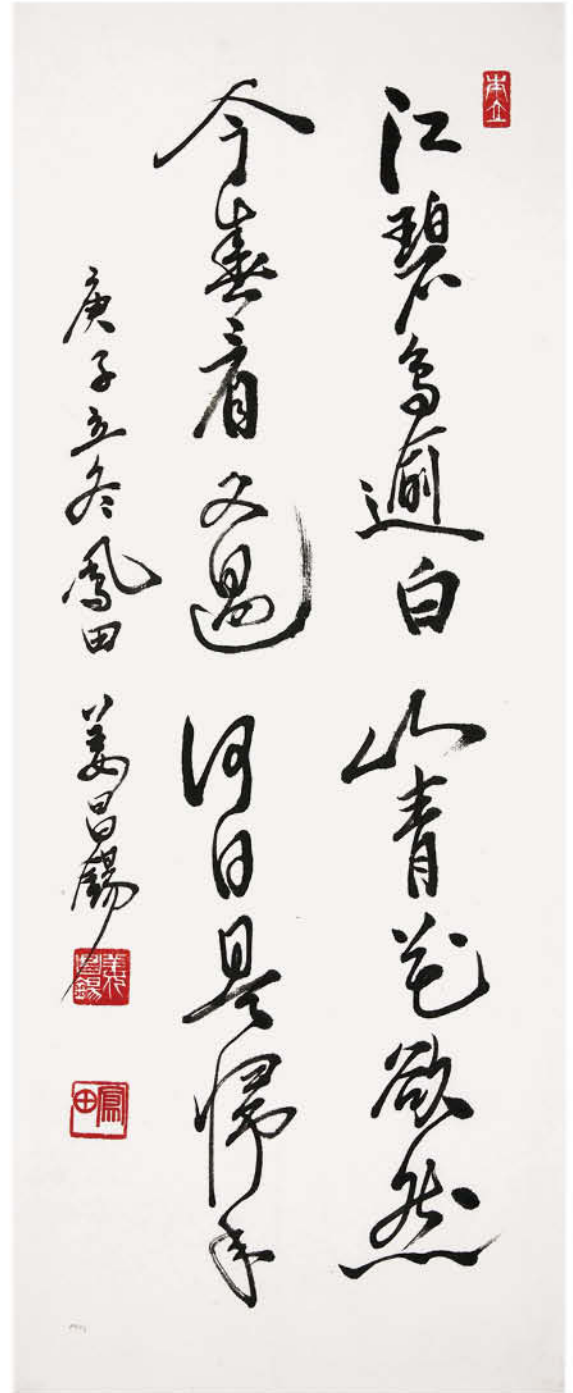 江碧鳥逾白山青花欲然
今春看又過何日是歸年
庚子立冬鳳田姜昌錫
本立
姜昌錫
鳳田